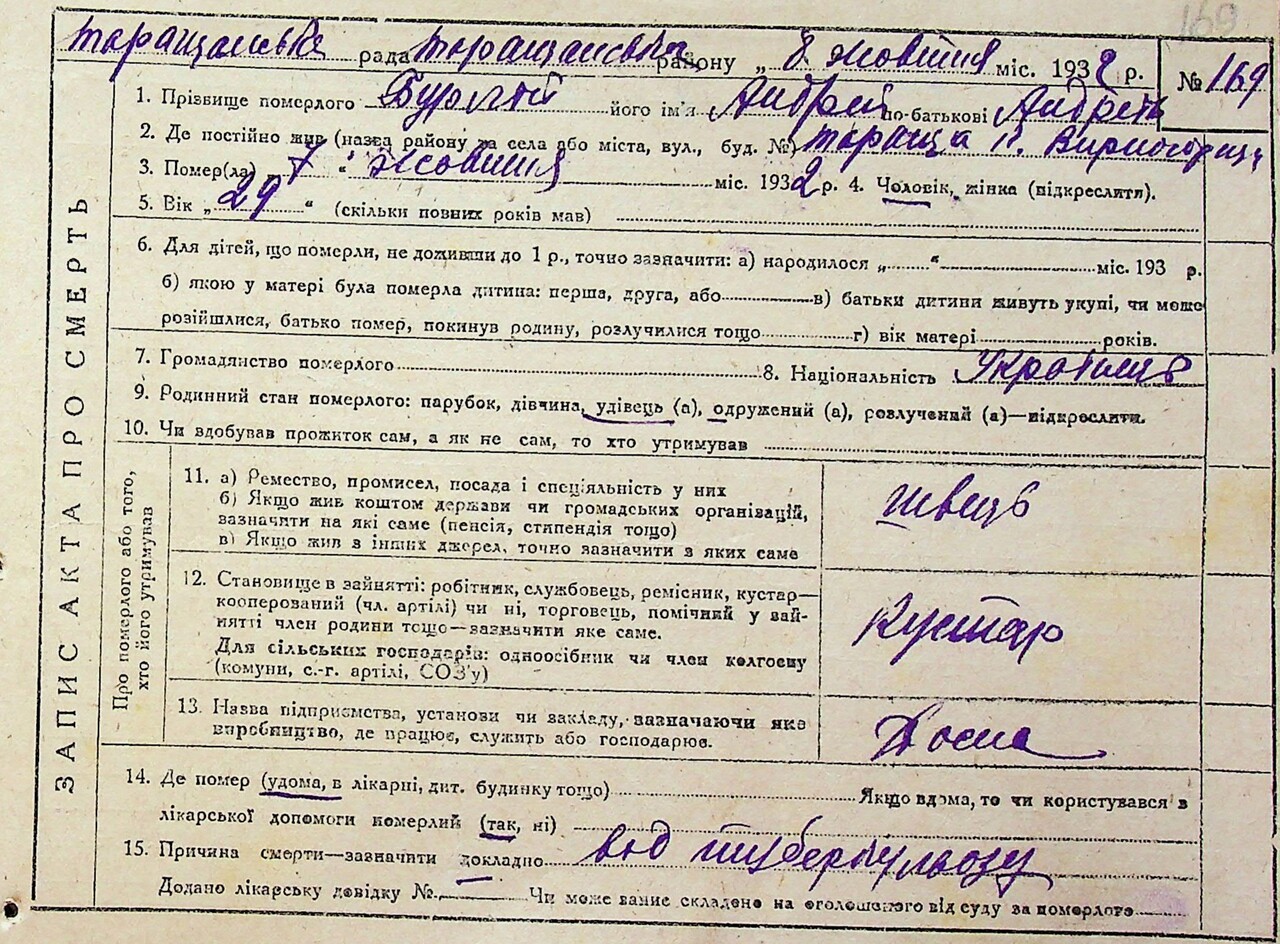 169
Таращанська рада Таращанськ району „ 8 жовтня міс. 1932 р. № 169
1. Прізвище померлого його ім'я Андрей по-батькові
2. Де постійно жив (назва району та села або міста, вул., буд. №) Тараща
3. Помер(ла) 7 " жовтня міс. 1932 р. 4. Чоловік, жінка (підкреслити).
5. Вік „ 29 " (скільки повних років мав)
6. Для дітей, що померли, не доживши до 1 р., точно зазначити: а) народилося „ " міс. 193 р.
б) якою у матері була померла дитина: перша, друга, або в) батьки дитини живуть укупі, чи може
розійшлися, батько помер, покинув родину, розлучилися тощо г) вік матері років.
7. Громадянство померлого 8. Національність Українець
9. Родинний стан померлого: парубок, дівчина, удівець (а), одружений (а), розлучений (а)—підкреслити.
10. Чи вдобував прожиток сам, а як не сам, то хто утримував
ЗАПИС АКТА ПРО СМЕРТЬ
Про померлого або того,
хто його утримував
11. а) Ремество, промисел, посада і спеціяльність у них
б) Якщо жив коштом держави чи громадських організацій,
зазначити на які саме (пенсія, стипендія тощо)
в) Якщо жив з інших джерел, точно зазначити з яких саме
швець
12. Становище в зайнятті: робітник, службовець, ремісник, кустар—
кооперований (чл. артілі) чи ні, торговець, помічний у зай-
нятті член родини тощо—зазначити яке саме.
Для сільських господарів: одноосібник чи член колгоспу
(комуни, с.-г. артілі, СОЗ'у)
Кустар
13. Назва підприємства, установи чи закладу, зазначаючи яке
виробництво, де працює, служить або господарює.
14. Де помер (удома, в лікарні, дит. будинку тощо) Якщо вдома, то чи користувався з
лікарської допомоги померлий (так, ні)
15. Причина смерти—зазначити докладно від туберкульозу
Додано лікарську довідку № Чи може запис складено на оголошеного від суду за померлого